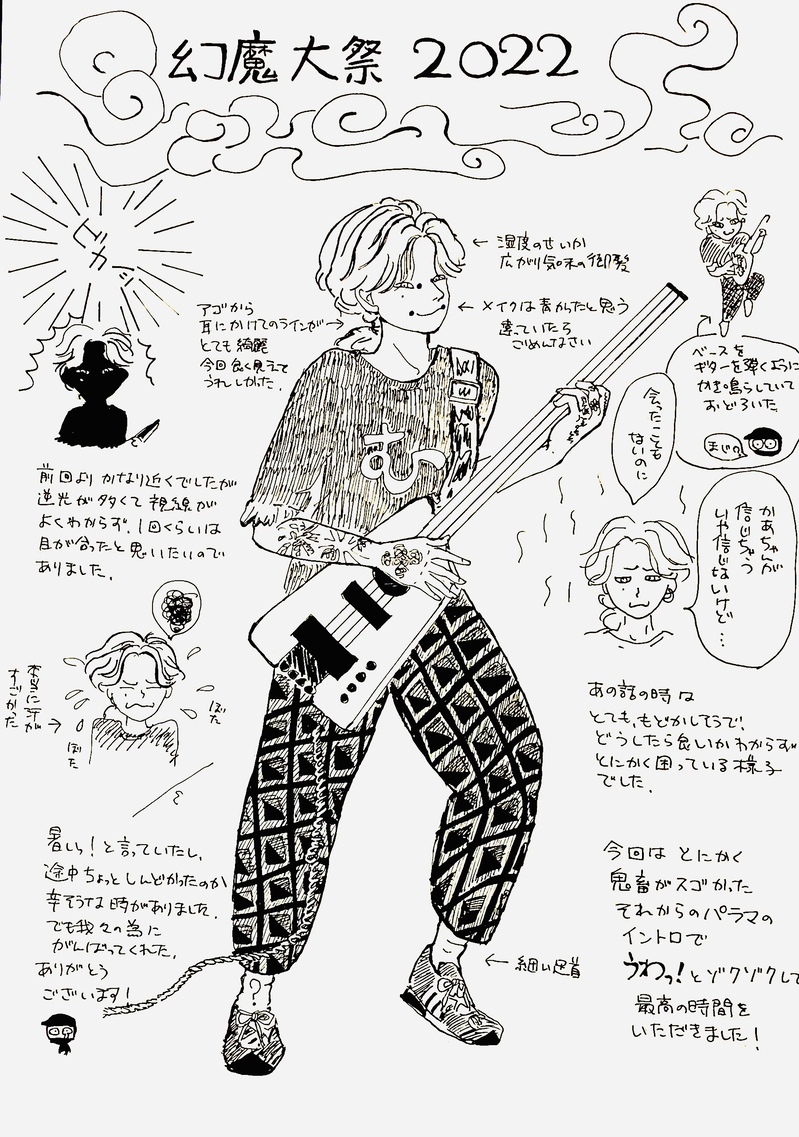 幻魔大祭 2022
ピカッ
← 湿度のせいか
広がり気味の御髪
← メイクは青かったと思う
違っていたら
ごめんなさい
アゴから
耳にかけてのラインが→
とても綺麗
今回良く見えて
うれしかった。
ベースを
ギターを弾くように
かき鳴らしていて
おどろいた
まじか
む
会ったことも
ないのに
かあちゃんが
信じちゃう
いや信じないけど…
前回よりかなり近くでしたが
逆光が多くて視線が
よくわからず。1回くらいは
目が合ったと思いたいので
ありました。
本当に汗が
すごかった
ぼた
ぼた
あの話の時は
とても、もどかしそうで、
どうしたら良いかわからず
とにかく困っている様子
でした。
暑いっ!と言っていたし、
途中ちょっとしんどかったのか
辛そうな時がありました。
でも我々の為に
がんばってくれた。
ありがとう
ございます!
今回はとにかく
鬼畜がスゴかった
それからのパラマの
イントロで
うわっ!とゾクゾクして
最高の時間を
いただきました!
← 細い足首